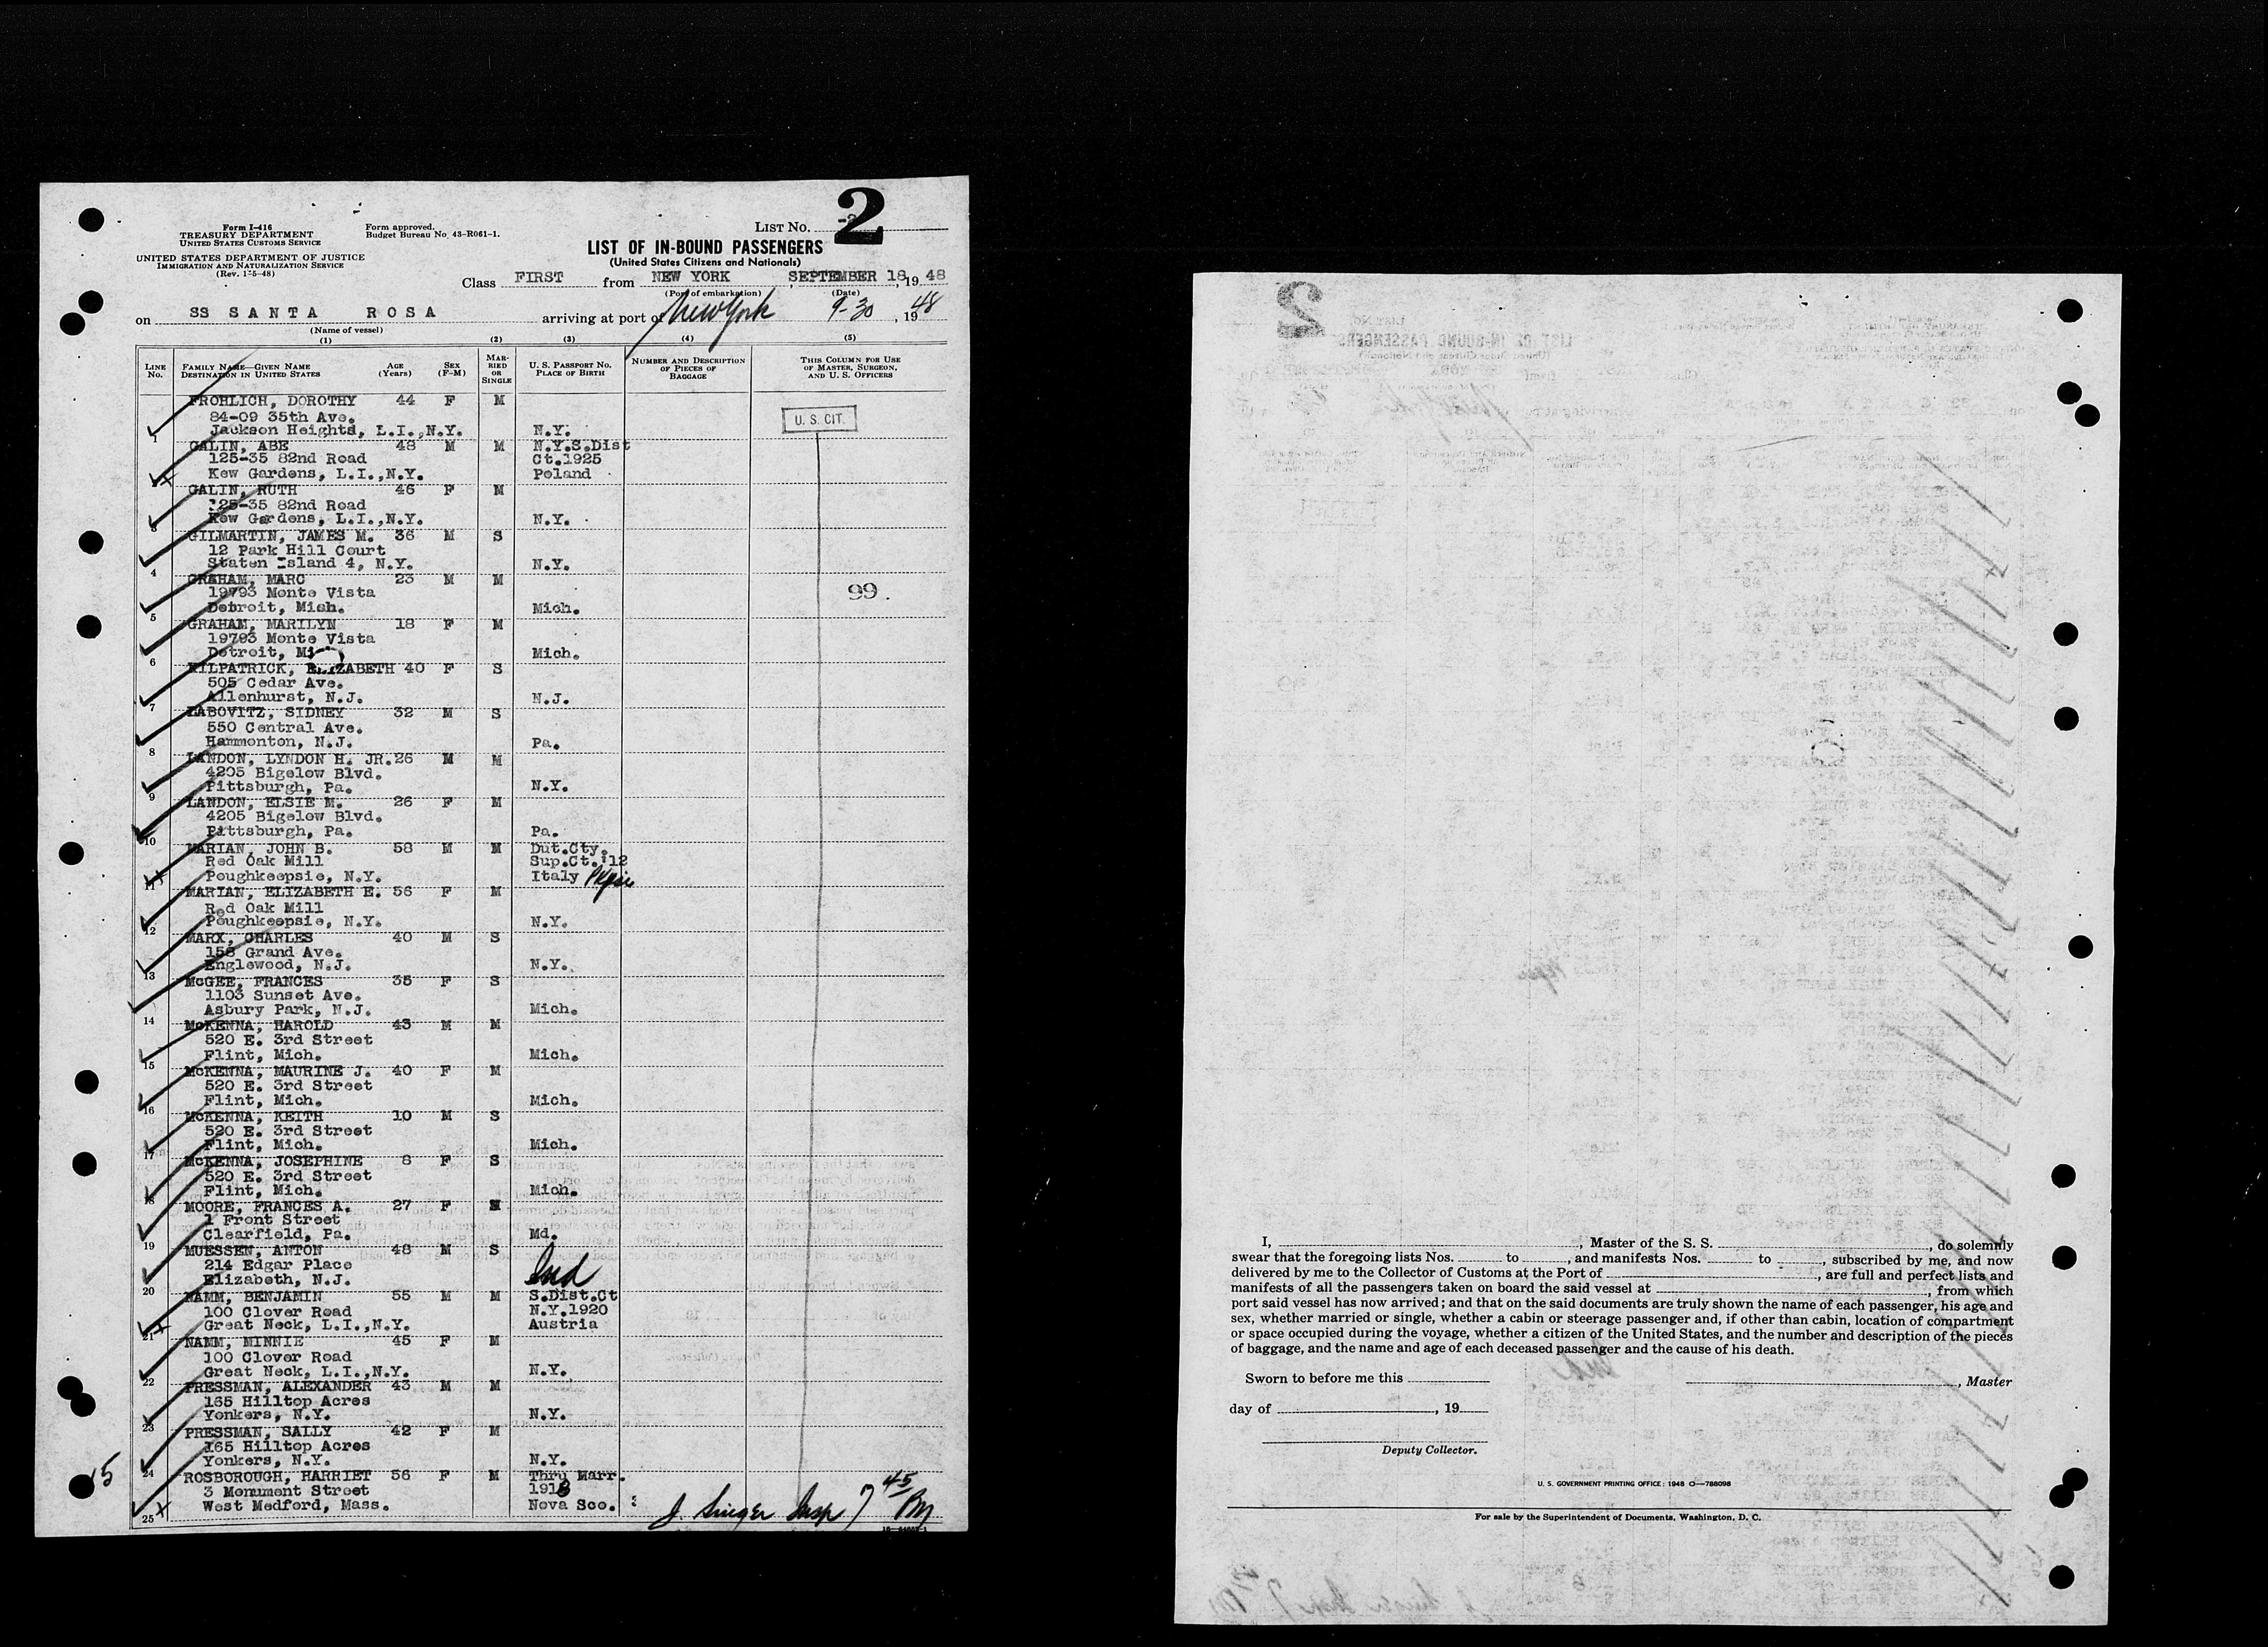 Form I-416
TREASURY DEPARTMENT
UNITED STATES CUSTOMS SERVICE
UNITED STATES DEPARTMENT OF JUSTICE
IMMIGRATION AND NATURALIZATION SERVICE
(Rev. 1-5-48)
Form approved.
Budget Bureau No. 43-R061-1.
LIST No. 2
LIST OF IN-BOUND PASSENGERS
(United States Citizens and Nationals)
Class FIRST from NEW YORK, SEPTEMBER 18, 1948
(Port of embarkation) (Date)
on SS SANTA ROSA arriving at port of New York 9-30, 1948
(Name of vessel)
(1) (2) (3) (4) (5)
LINE No. FAMILY NAME—GIVEN NAME DESTINATION IN UNITED STATES AGE (Years) SEX (F-M) MARRIED OR SINGLE U. S. PASSPORT NO. PLACE OF BIRTH NUMBER AND DESCRIPTION OF PIECES OF BAGGAGE THIS COLUMN FOR USE OF MASTER, SURGEON, AND U. S. OFFICERS
FROHLICH, DOROTHY 44 F M
84-09 35th Ave. U. S. CIT.
1 Jackson Heights, L.I.,N.Y. N.Y.
GALIN, ABE 48 M M N.Y.S.Dist
125-35 82nd Road Ct.1925
Kew Gardens, L.I.,N.Y. Poland
GALIN, RUTH 46 F M
125-35 82nd Road
3 Kew Gardens, L.I.,N.Y. N.Y.
GILMARTIN, JAMES M. 36 M S
12 Park Hill Court
4 Staten Island 4, N.Y. N.Y.
GRAHAM, MARC 23 M M
19793 Monte Vista 99.
5 Detroit, Mich. Mich.
GRAHAM, MARILYN 18 F M
19793 Monte Vista
6 Detroit, Mi Mich.
KILPATRICK, ELIZABETH 40 F S
505 Cedar Ave.
7 Allenhurst, N.J. N.J.
LABOVITZ, SIDNEY 32 M S
550 Central Ave.
8 Hammonton, N.J. Pa.
LANDON, LYNDON H. JR. 26 M M
4205 Bigelow Blvd.
9 Pittsburgh, Pa. N.Y.
LANDON, ELSIE M. 26 F M
4205 Bigelow Blvd.
10 Pittsburgh, Pa. Pa.
MARIAN, JOHN B. 58 M M Dut.Cty.
Red Oak Mill Sup.Ct.'12
11 Poughkeepsie, N.Y. Italy
MARIAN, ELIZABETH E. 56 F M
Red Oak Mill
12 Poughkeepsie, N.Y. N.Y.
MARX, CHARLES 40 M S
158 Grand Ave.
13 Englewood, N.J. N.Y.
McGEE, FRANCES 35 F S
1103 Sunset Ave.
14 Asbury Park, N.J. Mich.
McKENNA, HAROLD 43 M M
520 E. 3rd Street
15 Flint, Mich. Mich.
McKENNA, MAURINE J. 40 F M
520 E. 3rd Street
16 Flint, Mich. Mich.
McKENNA, KEITH 10 M S
520 E. 3rd Street
17 Flint, Mich. Mich.
McKENNA, JOSEPHINE 8 F S
520 E. 3rd Street
18 Flint, Mich. Mich.
MOORE, FRANCES A. 27 F M
1 Front Street
19 Clearfield, Pa. Md.
MUESSEN, ANTON 48 M S
214 Edgar Place
20 Elizabeth, N.J. Ind
NAMM, BENJAMIN 55 M M S.Dist.Ct
100 Clover Road N.Y.1920
21 Great Neck, L.I.,N.Y. Austria
NAMM, MINNIE 45 F M
100 Clover Road
22 Great Neck, L.I.,N.Y. N.Y.
PRESSMAN, ALEXANDER 43 M M
165 Hilltop Acres
23 Yonkers, N.Y. N.Y.
PRESSMAN, SALLY 42 F M
165 Hilltop Acres
24 Yonkers, N.Y. N.Y.
ROSBOROUGH, HARRIET 56 F M Thru Marr.
3 Monument Street 1918
25 West Medford, Mass. Nova Sco.
J. Singer Insp 7 45 PM
I, , Master of the S. S. , do solemnly
swear that the foregoing lists Nos. to , and manifests Nos. to , subscribed by me, and now
delivered by me to the Collector of Customs at the Port of , are full and perfect lists and
manifests of all the passengers taken on board the said vessel at , from which
port said vessel has now arrived; and that on the said documents are truly shown the name of each passenger, his age and
sex, whether married or single, whether a cabin or steerage passenger and, if other than cabin, location of compartment
or space occupied during the voyage, whether a citizen of the United States, and the number and description of the pieces
of baggage, and the name and age of each deceased passenger and the cause of his death.
Sworn to before me this
, Master
day of , 19
Deputy Collector.
U. S. GOVERNMENT PRINTING OFFICE: 1948 O—788098
For sale by the Superintendent of Documents, Washington, D. C.